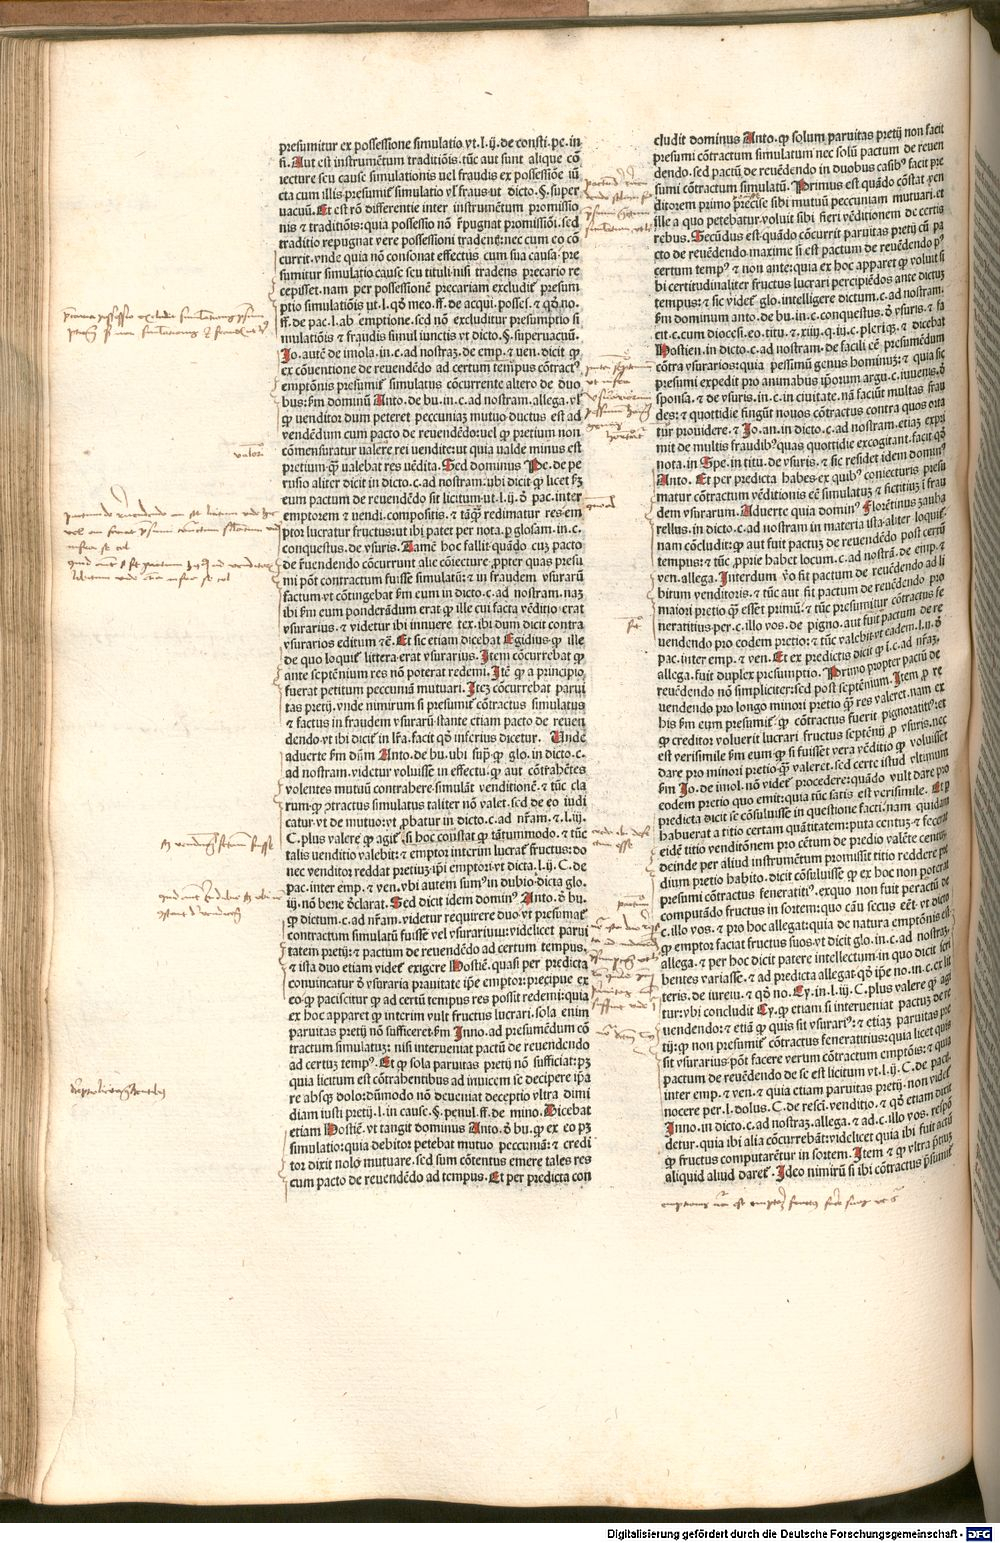 presumitur ex possessione simulatio vt.l.ij.de consti.pe.in
fi.Aut est instrumētum traditiōis.tūc aut sunt alique cō
iecture seu cause simulationis uel fraudis ex possessiōe iū
cta cum illis presumit̄ simulatio vl̄ fraus.ut dicto.§.super
uacuū.Et est rō differentie inter instrumētum promissio
nis ⁊ traditiōis:quia possessio nō r̄pugnat promissiōi.sed
traditio repugnat vere possessioni tradent̄:nec cum eo cō
currit.vnde quia nō consonat effectus cum sua causa.pre
sumitur simulatio cause seu tituli.nisi tradens precario re
cepisset.nam per possessionē precariam excludit̄ presum
ptio simulatiōis ut.l.qd̄ meo.ff.de acqui.posses.⁊ qd̄ no.
ff.de pac.l.ab emptione.sed nō excluditur presumptio si
mulatiōis ⁊ fraudis simul iunctis vt dicto.§.superuacuū.
Jo.autē de imola.in.c.ad nostraꝫ.de emp.⁊ uen.dicit ꝙ
ex cōuentione de reuendēdo ad certum tempus cōtract⁹
emptōnis presumit̄ simulatus cōcurrente altero de duo
bus:s̄m dominū Anto.de bu.in.c.ad nostram.allega.vl̄
ꝙ venditor dum peteret peccuniaꝫ mutuo ductus est ad
vendēdum cum pacto de reuendēdo:uel ꝙ pretium non
cōmensuratur valore rei vendite:ut quia valde minus est
pretium ꝙ̄ ualebat res uēdita.Sed dominus Pe.de pe
rusio aliter dicit in dicto.c.ad nostram:ubi dicit ꝙ licet s̄ꝫ
eum pactum de reuendēdo sit licitum.ut.l.ij.C.de pac.inter
emptorem ⁊ uendi.compositis.⁊ tāqꝫ redimatur res.em
ptor lucratur fructus:ut ibi patet per nota.p glosam.in.c.
conquestus.de vsuris.Tamē hoc fallit quādo cuꝫ pacto
de r̄uendēdo cōcurrunt alie cōiecture ꝓpter quas presu
mi pōt contractum fuisse simulatū:⁊ in fraudem vsurarū
factum vt cōtingebat s̄m eum in dicto.c.ad nostram.naꝫ
ibi s̄m eum ponderādum erat ꝙ ille cui facta vēditio erat
vsurarius.⁊ videtur ibi innuere tex.ibi dum dicit contra
vsurarios editum ⁊c̄.Et sic etiam dicebat Egidius.ꝙ ille
de quo loquit̄ littera erat vsurarius.Item cōcurrebat ꝙ
ante septēnium res nō poterat redemi.Itē ꝙ a principio
fuerat petitum peccuniā mutuari.Iteꝫ cōcurrebat parui
tas pretij.vnde nimirum si presumit̄ cōtractus simulatus
⁊ factus in fraudem vsurarū.stante etiam pacto de reuen
dendo.vt ibi dicit̄ in lr̄a.facit qd̄ inferius dicetur. Unde
aduerte s̄m dn̄m Anto.de bu.ubi sup̄.ꝙ glo.in dicto.c.
ad nostram.videtur voluisse in effectu.ꝙ aut cōtrahētes
volentes mutuū contrahere.simulāt venditionē.⁊ tūc cla
rum.ꝙ ꝯtractus simulatus taliter nō valet.sed de eo iudi
catur vt de mutuo:vt ꝓbatur in dicto.c.ad nr̄am.⁊.l.iij.
C.plus valere ꝙ agit̄.si hoc cōstat ꝙ tātummodo.⁊ tūc
talis venditio valebit:⁊ emptor interim lucrat̄ fructus:do
nec venditor reddat pretiuꝫ ip̄i emptori.vt dicta.l.ij.C.de
pac.inter emp.⁊ ven.vbi autem sum⁹ in dubio.dicta glo.
iij.nō bene d̄clarat.Sed dicit idem domin⁹ Anto.d̄ bu.
ꝙ dictum.c.ad nr̄am.videtur requirere duo.vt presumat̄
contractum simulatū fuisse vel vsurariuꝫ:videlicet parui
tatem pretij:⁊ pactum de reuendēdo ad certum tempus.
⁊ ista duo etiam videt̄ exigere Hostiē.quasi per predicta
conuincatur d̄ vsuraria prauitate ip̄e emptor:precipue ex
eo.ꝙ paciscitur ꝙ ad certū tempus res possit redemi:quia
ex hoc apparet ꝙ interim vult fructus lucrari.sola enim
paruitas pretij nō sufficeret.s̄m Inno.ad presumēdum cō
tractum simulatuꝫ:nisi interueniat pactū de reuendendo
ad certuꝫ temp⁹.Et ꝙ sola paruitas pretij nō sufficiat:pꝫ
quia licitum est cōtrahentibus ad inuicem se decipere ip̄a
re absqꝫ dolo:dūmodo nō deueniat deceptio vltra dimi
diam iusti pretij.l.in cause.§.penul.ff.de mino.Dicebat
etiam Hostiē.vt tangit dominus Anto.d̄ bu.ꝙ ex eo pꝫ
simulatio:quia debitor petebat mutuo peccuniā:⁊ credi
tor dixit nolo mutuare.sed sum cōtentus emere tales res
cum pacto de reuendēdo ad tempus.Et per predicta con
cludit dominus Anto.ꝙ solum paruitas pretij non facit
presumi cōtractum simulatum nec solū pactum de reuen
dendo.sed pactū de reuēdendo in duobus casib⁹ facit pre
sumi cōtractum simulatū.Primus est quādo cōstat ven
ditorem primo precise sibi mutuū peccuniam mutuari.et
ille a quo petebatur voluit sibi fieri vēditionem de certis
rebus.Secūdus est quādo cōcurrit paruitas pretij cū pa
cto de reuēdendo maxime si est pactum de reuēdendo p⁹
certum temp⁹ ⁊ non ante:quia ex hoc apparet ꝙ voluit si
bi certitudinaliter fructus lucrari percipiēdos ante dictuꝫ
tempus:⁊ sic videt̄ glo.intelligere dictum.c.ad nostram.
s̄m dominum anto.de bu.in.c.conquestus.d̄ vsuris.⁊ fa
cit.c.cum diocesi.eo.titu.⁊.xiiij.q.iij.c.pleriqꝫ.⁊ dicebat
Hostien.in dicto.c.ad nostram.de facili ec̄ presumēdum
cōtra vsurarios:quia pessimū genus hominuꝫ:⁊ quia sic
presumi expedit pro animabus ip̄orum argu.c.iuuenis.d̄
sponsa.⁊ de vsuris.in.c.in ciuitate.nā faciūt multas frau
des:⁊ quottidie fingūt nouos cōtractus contra quos oīta
tur prouidere.⁊ Jo.an.in dicto.c.ad nostram.etiaꝫ expri
mit de multis fraudib⁹ quas quottidie excogitant.facit qd̄
nota.in Spe.in titu.de vsuris.⁊ sic residet idem domin⁹
Anto. Et per predicta habes ex quib⁹ coniecturis presu
matur cōtractum vēditionis eē simulatuꝫ ⁊ fictitiuꝫ ī frau
dem vsurarum.Aduerte quia domin⁹ Florētinus zaba
rellus.in dicto.c.ad nostram in materia ista aliter loquit̄.
nam cōcludit:ꝙ aut fuit pactuꝫ de reuendēdo post certū
tempus:⁊ tūc ꝓprie habet locum.c.ad nostrā.de emp.⁊
ven.allega.Interdum v̄o fit pactum de reuendēdo ad li
birum venditoris.⁊ tūc aut fit pactum de reuendēdo pro
maiori pretio ꝙ̄ esset primū.⁊ tūc presumitur cōtractus fe
neratitius per.c.illo vos.de pigno.aut fuit pactum de re
uendendo pro eodem pretio:⁊ tūc valebit.vt eadem.l.ij.d̄
pac.inter emp.⁊ ven.Et ex predictis dicit ꝙ ī.c.ad nr̄aꝫ.
allega.fuit duplex presumptio.Primo propter pactū de
reuēdendo nō simpliciter:sed post septēnium.Item ꝙ re
uendendo pro longo minori pretio ꝙ̄ res valeret.nam ex
his s̄m eum presumit̄ ꝙ contractus fuerit pignoratiti⁹:et
ꝙ creditor voluerit lucrari fructus septēnij ꝓ vsuris.nec
est verisimile s̄m eum.ꝙ si fuisset vera vēditio ꝙ voluisset
dare pro minori pretio ꝙ̄ valeret.sed certe istud vltimum
s̄m Jo.de imol.nō videt̄ procedere:quādo vult dare pro
eodem pretio quo emit:quia tūc satis est verisimile. Et p
predicta dicit se cōsuluisse in questione facti.nam quidam
habuerat a titio certam quātitatem:puta centuꝫ:⁊ fecerat
eidē titio venditōnem pro cētum de predio valēte centuꝫ.
deinde per aliud instrumētum promissit titio reddere pre
dium pretio habito.dicit cōsuluisse ꝙ ex hoc non poterat
presumi cōtractus feneratiti⁹.exquo non fuit peractū de
computādo fructus in sortem:quo cāu secus eēt.vt dicto
c.illo vos.⁊ pro hoc allegat:quia de natura emptōnis est
ꝙ emptor faciat fructus suos.vt dicit glo.in.c.ad nostraꝫ.
allega.⁊ per hoc dicit patere intellectum in quo dicit scri
bentes variasse.⁊ ad predicta allegat.qd̄ ip̄e no.in.c.ex lit
teris.de iureiu.⁊ qd̄ no.Cy.in.l.iij.C.plus valere ꝙ agi
tur:vbi concludit Cy.ꝙ etiam si interueniat pactuꝫ de re
uendendo:⁊ etiā ꝙ quis sit vsurari⁹:⁊ etiaꝫ paruitas pre
tij:ꝙ non presumit̄ cōtractus feneratitius:quia licet quis
sit vsurarius pōt facere verum cōtractum emptōis:⁊ quia
pactum de reuendēdo de se est licitum vt.l.ij.C.de pact.
inter emp.⁊ ven.⁊ quia etiam paruitas pretij.non videt̄
nocere per.l.dolus.C.de resci.venditio.⁊ qd̄ etiam dicit
Inno.in dicto.c.ad nostraꝫ.allega.⁊ ad.c.illo vos.respō
detur.quia ibi alia cōcurrebāt:videlicet quia ibi fuit actū
ꝙ fructus computarētur in sortem.Item ⁊ ꝙ vltra p̄tiuꝫ
aliquid aliud daret̄.Ideo nimirū si ibi cōtractus p̄sumit̄
Digitalisierung gefördert durch die Deutsche Forschungsgemeinschaft - DFG